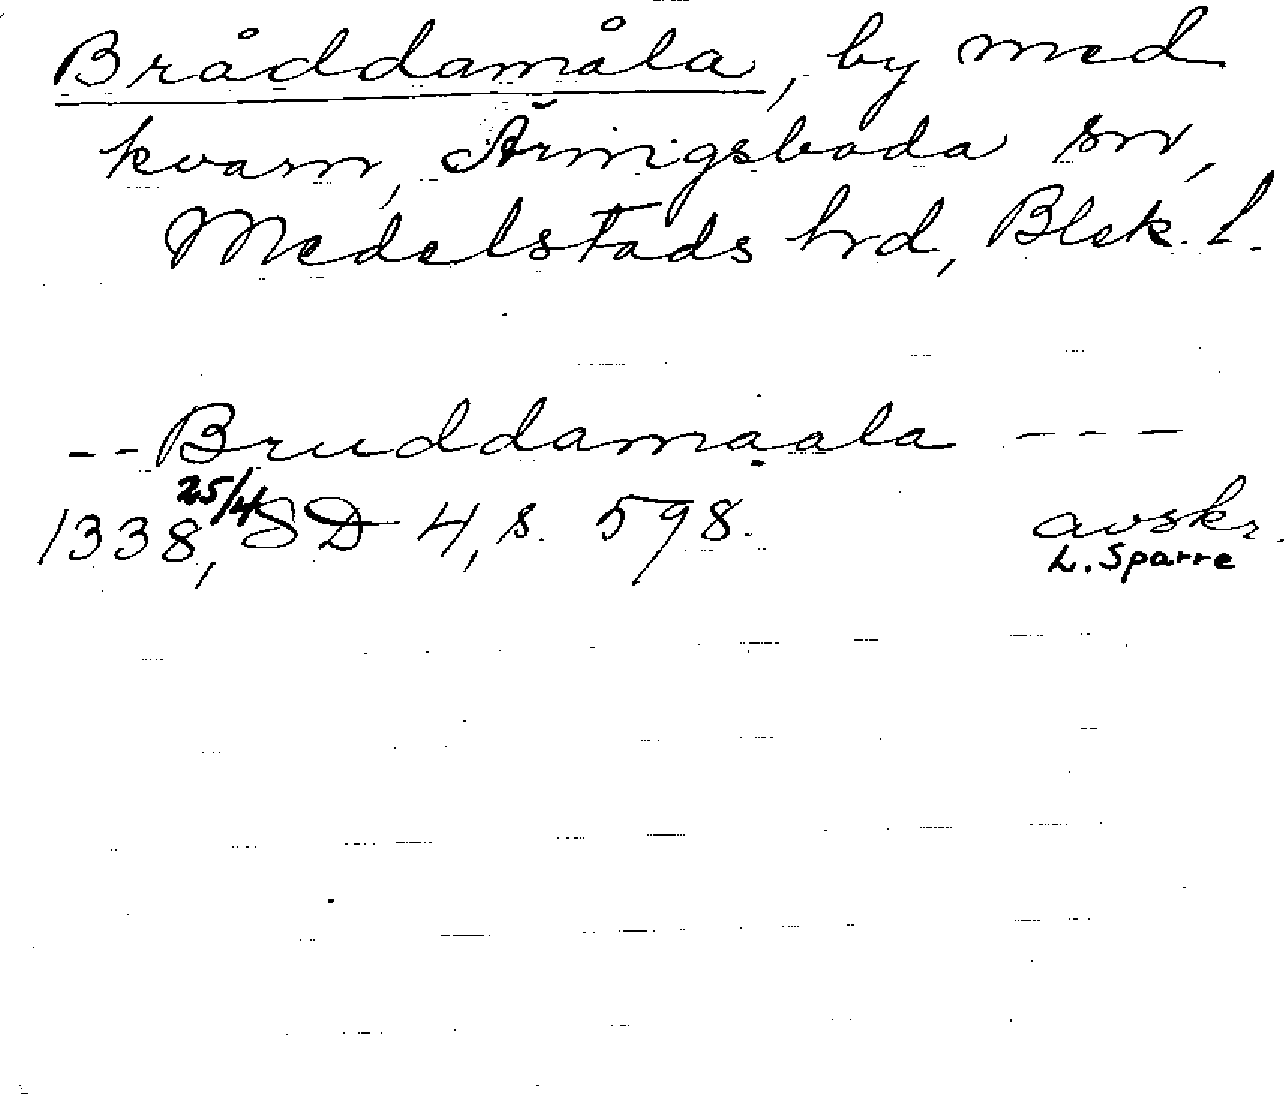 Bråddamåla, by med
kvarn, Äringsboda sn,
Medelstads hrd, Blek. l.
-- Bruddamaala ---
1338, 25/4 SD 4, s. 598. avskr.
L. Sparre